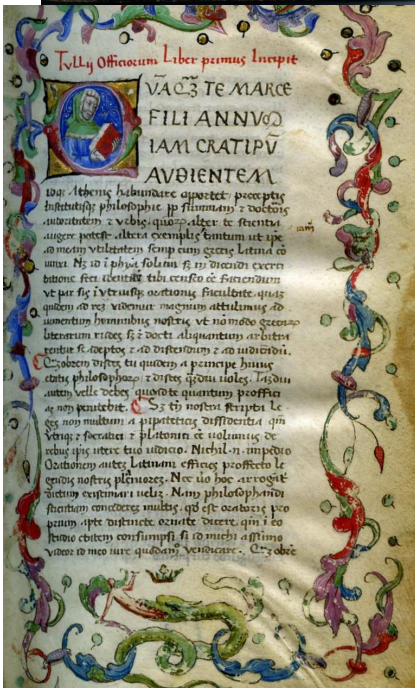 Tullij Officiorum Liber primus Incipit
QVĀQȜ TE MARCE
FILI ANNVȜ
IAM CRATIPŪ
AVDIENTEM
idqȝ Athenis habundare oportet preceptis
institutisqȝ philosophie pp summam & doctoris
autoritatem & vrbis quoꝝ alter te scientia
augere potest. altera exemplis tantum ut ipe
ad meam vtilitatem semp cum grecis latina cō
iunxi. Nȝ id ī phīa solum sȝ in dicendi exerci
tatione feci tibi censeo ēē faciendum
vt par sis ī vtriusqȝ orationis facultate. quaȝ
quidem ad rez videmur magnum attulimus ad
iumentum hominibus nostris vt nō modo grecaꝝ
literarum rudes sȝ & docti aliquantum arbitra
rentur se adeptos & ad discendum & ad iudicādū.
disces tu quidem a principe huius
etatis philosophoꝝ & disces qȝdiu uoles. Tazdiu
autem velle debes quoadte quantum proffici
as non penitebit. Sȝ tn̄ nostra scripta le
ges non multum a pipateticis dissidentia qm̄
vtriqȝ & socratici & platonici ēē volumus de
rebus ipis vtere tuo iudicio. Nichil n. impedio
Orationem autez Latinam efficies proffecto le
gendis nostris pleniorez. Nec uo hoc arrogāt
dictum existimari velis. Nam philosophandi
scientiam concedens multis. qd est oratoris pro
prium apte distincte ornate dicere. qm̄ ī eo
studio etatem consumpsi si id michi assumo
videor id meo iure quodam vendicare.